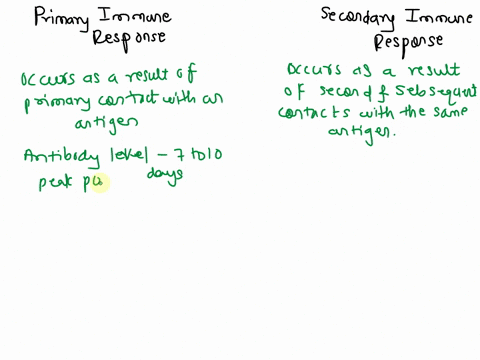 Primary Immune
Response
Occurs as a result of
primary contact with an
antigen
Antibody level - 7 to 10
days
peak pa
Secondary Immune
Response
Occurs as a result
of second & Subsequent
contacts with the same
antigen.